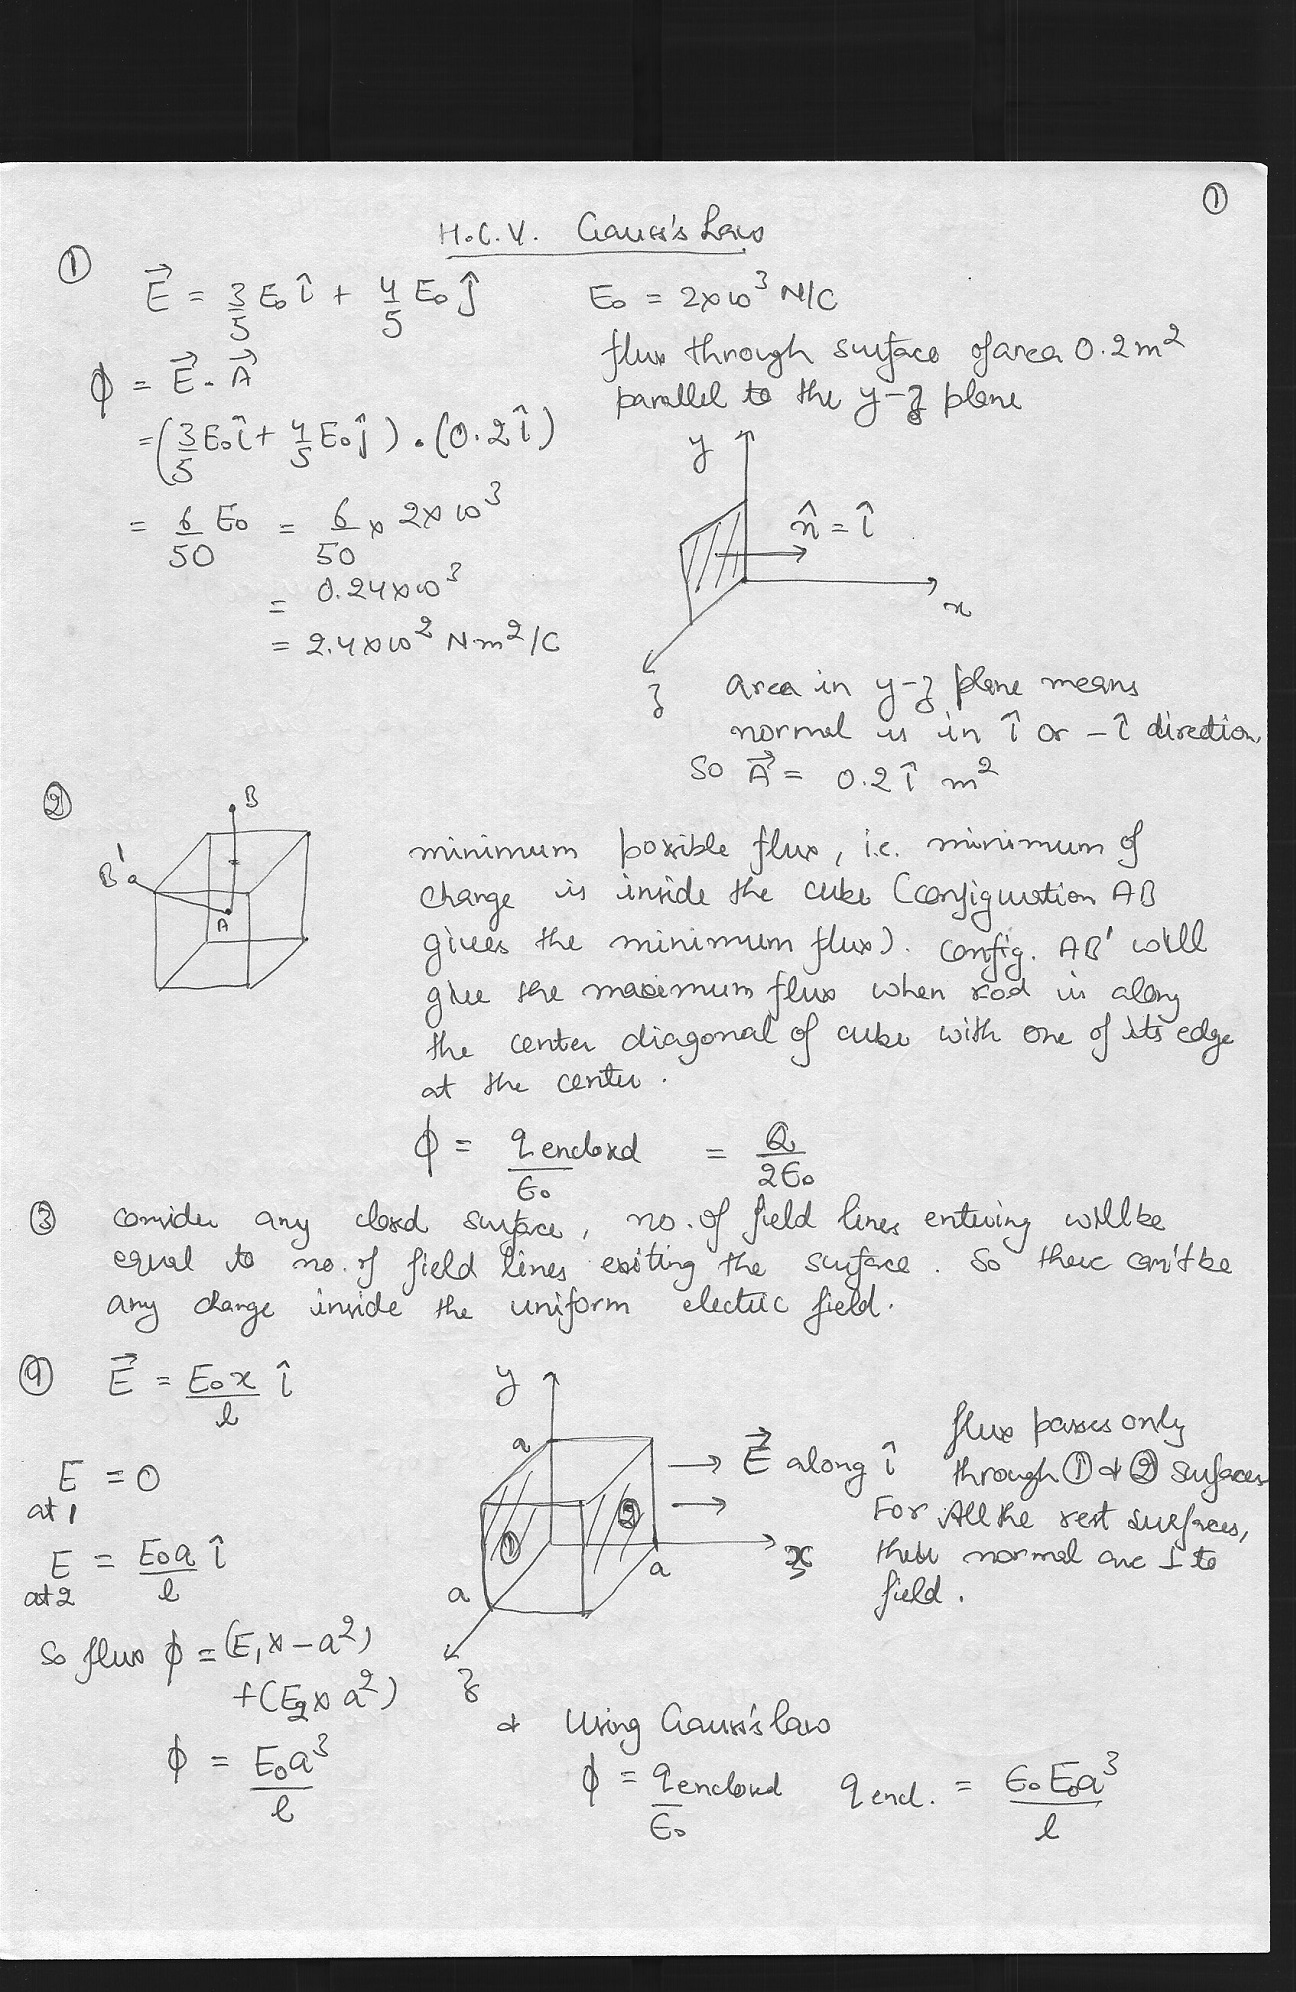 ①
H.C.V. Gauss's Law
① E⃗ = 3/5 E₀ î + 4/5 E₀ ĵ
E₀ = 2×10³ N/C
flux through surface of area 0.2 m²
parallel to the y-z plane
ϕ = E⃗ . A⃗
= (3/5 E₀ î + 4/5 E₀ ĵ) . (0.2 î)
= 6/50 E₀ = 6/50 × 2×10³
= 0.24×10³
= 2.4×10² N.m²/C
y
n̂ = î
x
z
area in y-z plane means
normal is in î or -î direction,
So A⃗ = 0.2 î m²
②
B
B'
A
minimum possible flux, i.e. minimum of
charge is inside the cube (configuration AB
gives the minimum flux). Config. AB' will
give the maximum flux when rod is along
the center diagonal of cube with one of its edge
at the center.
ϕ = q enclosed / ϵ₀ = Q / 2ϵ₀
③ consider any closed surface, no. of field lines entering will be
equal to no. of field lines exiting the surface. So there can't be
any charge inside the uniform electric field.
④ E⃗ = E₀x / l î
E = 0
at 1
E = E₀a / l î
at 2
So flux ϕ = (E₁ × -a²)
+ (E₂ × a²)
ϕ = E₀a³ / l
y
a
①
②
a
a
x
z
E⃗ along î
flux passes only
through ① & ② surfaces
For All the rest surfaces,
their normal are ⊥ to
field.
& Using Gauss's law
ϕ = q enclosed / ϵ₀ q encl. = ϵ₀ E₀a³ / l